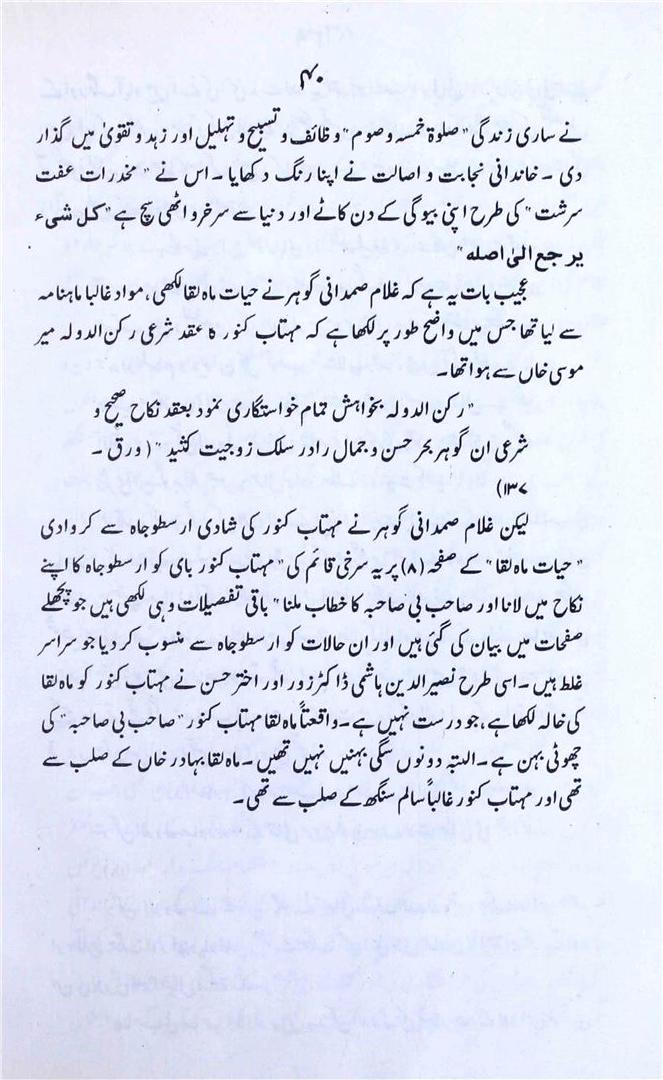 ۴۰
نے ساری زندگی "صلوۃ خمسہ و صوم" وظائف و تسبیح و تہلیل اور زہد و تقویٰ میں گذار
دی ۔ خاندانی نجابت و اصالت نے اپنا رنگ دکھایا ۔ اس نے "مخدرات عفت
سرشت" کی طرح اپنی بیوگی کے دن کاٹے اور دنیا سے سرخرو اٹھی سچ ہے "کل شیء
یرجع الیٰ اصلہ"
عجیب بات یہ ہے کہ غلام صمدانی گوہر نے حیات ماہ لقا لکھی، مواد غالبا ماہنامہ
سے لیا تھا جس میں واضح طور پر لکھا ہے کہ مہتاب کنور کا عقد شرعی رکن الدولہ میر
موسی خاں سے ہوا تھا۔
"رکن الدولہ بخواہش تمام خواستگاری نمود بعقد نکاح صحیح و
شرعی ان گوہر بحر حسن و جمال را در سلک زوجیت کشید" (ورق ۔
۱۳۷)
لیکن غلام صمدانی گوہر نے مہتاب کنور کی شادی ارسطوجاہ سے کروادی
"حیات ماہ لقا" کے صفحہ (۸) پر یہ سرخی قائم کی "مہتاب کنور بای کو ارسطوجاہ کا اپنے
نکاح میں لانا اور صاحب بی صاحبہ کا خطاب ملنا" باقی تفصیلات وہی لکھی ہیں جو پچھلے
صفحات میں بیان کی گئی ہیں اور ان حالات کو ارسطوجاہ سے منسوب کر دیا جو سراسر
غلط ہیں ۔ اسی طرح نصیر الدین ہاشمی ڈاکٹر زور اور اختر حسن نے مہتاب کنور کو ماہ لقا
کی خالہ لکھا ہے، جو درست نہیں ہے ۔ واقعتاً ماہ لقا مہتاب کنور "صاحب بی صاحبہ" کی
چھوٹی بہن ہے ۔ البتہ دونوں سگی بہنیں نہیں تھیں ۔ ماہ لقا بہادر خاں کے صلب سے
تھی اور مہتاب کنور غالباً سالم سنگھ کے صلب سے تھی۔